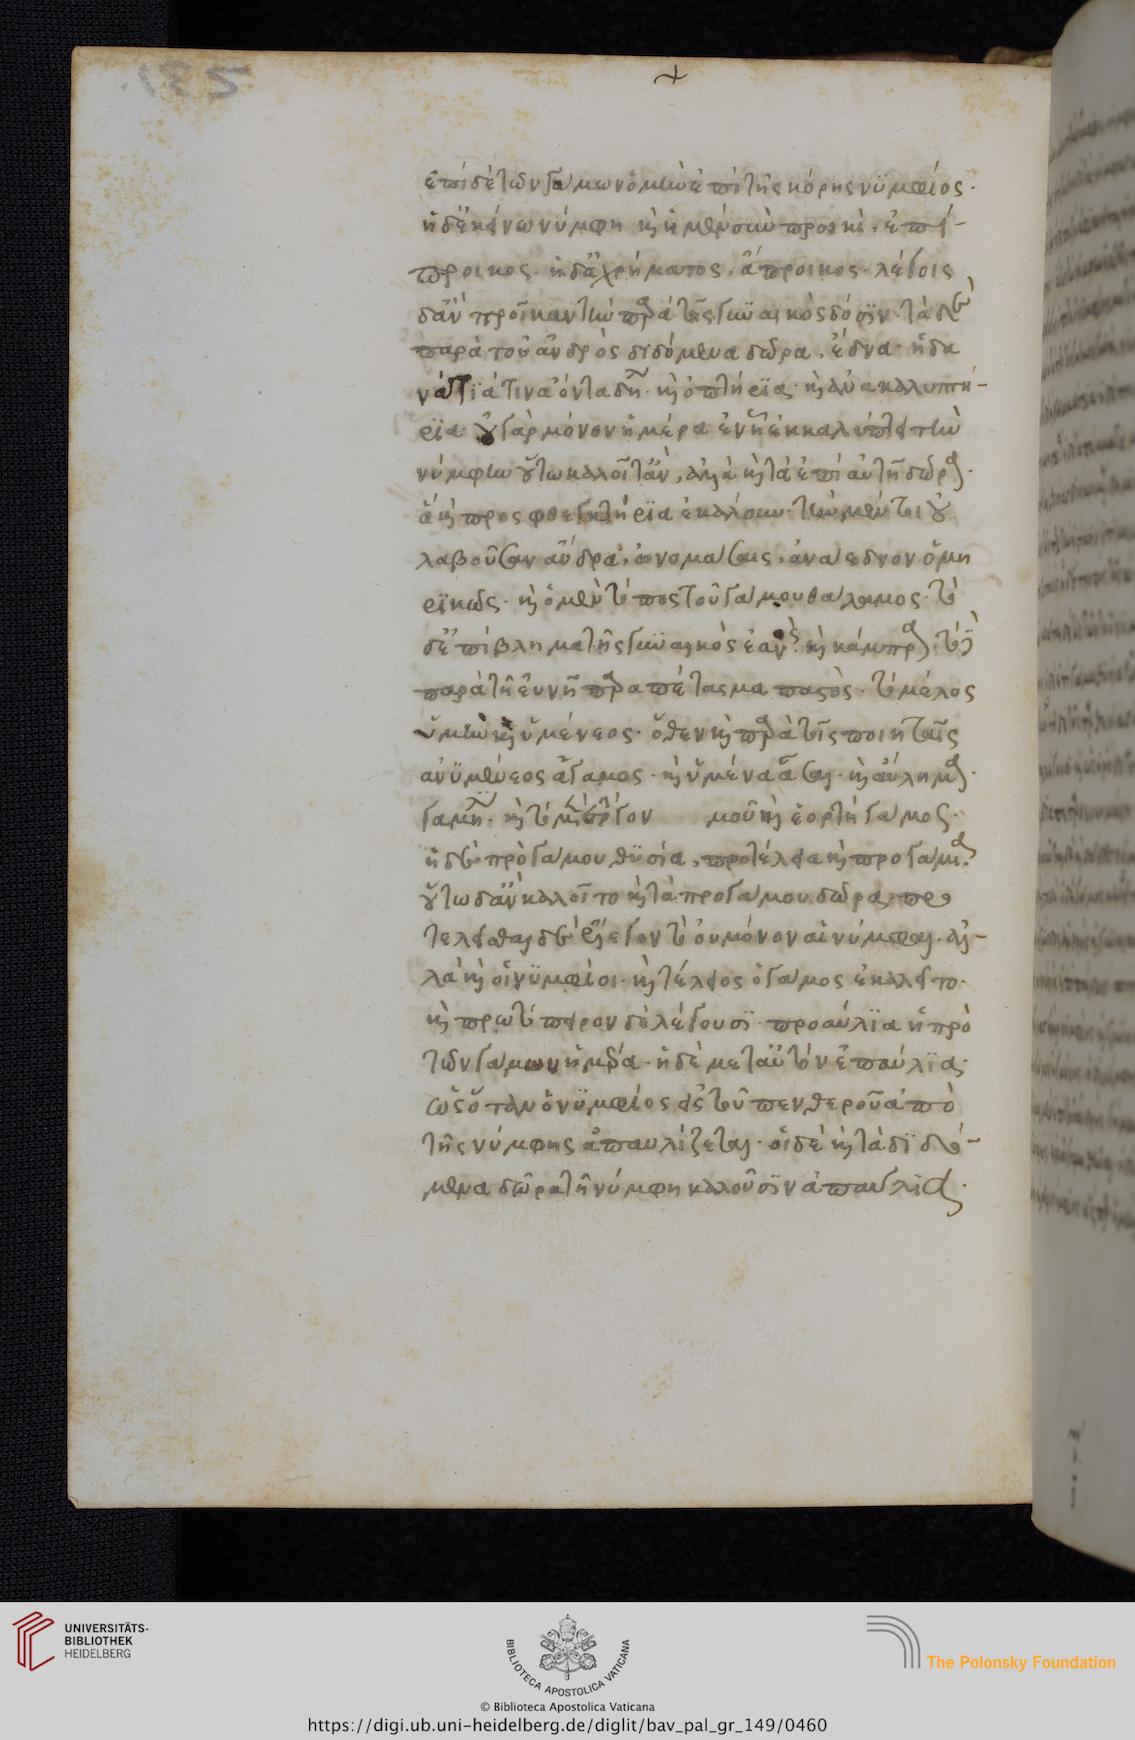 ἐπὶ δὲ τῶν γάμων ὁ μὲν ἐπὶ τῆς κόρης νυμφίος·
ἡ δ' ἐκείνων νύμφη καὶ ἡ μὲν σὺν προικὶ, ἐπί
προικος· ἡ δ' ἀχρήματος, ἄπροικος· λέγοις
δ' ἂν προῖκα τὴν παρὰ τῆς γυναικὸς δόσιν· τὰ δὲ
παρὰ τοῦ ἀνδρὸς διδόμενα δῶρα, ἕδνα·
καὶ ὀπτήρια· καὶ ἀνακαλυπτή
ρια· οὐ γὰρ μόνον ἡ μέρα ἐν ᾗ ἐκκαλύπτει τὴν
νύμφην οὕτω καλοῖτ' ἂν, ἀλλὰ καὶ τὰ ἐπ' αὐτῇ δῶρα·
ἃ καὶ προσφθεγκτήρια ἐκάλουν· τὴν μέντοι οὐ
λαβοῦσαν ἄνδρα, ὀνομάσαις, ἀνάεδνον ὁμη
ρικῶς· καὶ ὁ μὲν τόπος τοῦ γάμου θάλαμος· τὸ
δ' ἐπίβλημα τῆς γυναικὸς
παρὰ τῇ εὐνῇ παραπέτασμα παστὸς· τὸ μέλος
ὑμὴν καὶ ὑμέναιος· ὅθεν καὶ παρὰ τοῖς ποιηταῖς
ἀνυμέναιος ἄγαμος· καὶ ὑμέναι ᾆσαι· καὶ αὔλημα
μοῦ καὶ ἑορτὴ γάμος·
ἡ δὲ πρὸ γάμου θυσία, προτέλεια καὶ προγάμια·
οὕτω δ' ἂν καλοῖτο καὶ τὰ πρὸ γάμου δῶρα· προ
τελεῖσθαι δὲ ἔλεγον τὸ οὐ μόνον αἱ νύμφαι· ἀλ
λὰ καὶ οἱ νυμφίοι· καὶ τέλος ὁ γάμος ἐκαλεῖτο·
καὶ λέγουσι· προαύλια ἡ πρὸ
τῶν γάμων ἡμέρα· ἡ δὲ μετ' αὐτὸν ἐπαύλια·
ὁ νυμφίος εἰς τοῦ πενθεροῦ ἀπὸ
τῆς νύμφης ἀπαυλίζεται· οἱ δὲ καὶ τὰ διδό
μενα δῶρα τῇ νύμφῃ καλοῦσιν ἀπαύλια·
UNIVERSITÄTS-
BIBLIOTHEK
HEIDELBERG
BIBLIOTECA APOSTOLICA VATICANA
The Polonsky Foundation
© Biblioteca Apostolica Vaticana
https://digi.ub.uni-heidelberg.de/diglit/bav_pal_gr_149/0460